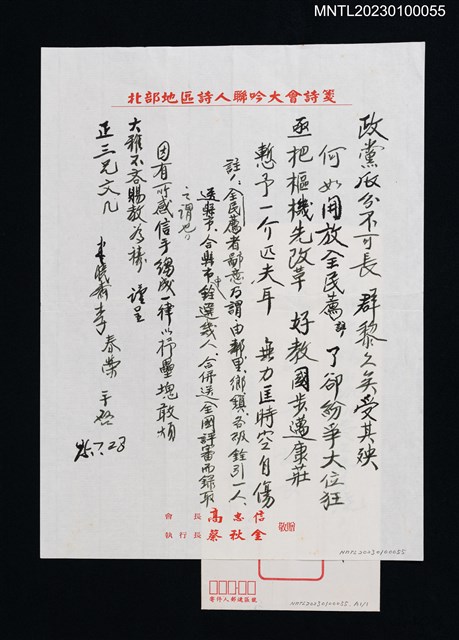 MNTL20230100055
北部地區詩人聯吟大會詩箋
政黨分不可長 群黎久矣受其殃
何如開放全民薦 了卻紛爭大位狂
亟把樞機先改革 好教國步邁康莊
慙予一介匹夫耳 無力匡時空自傷
註:全民薦者鄙意乃謂由鄰里、鄉鎮、各級銓引一人、
送縣市、合縣市銓選幾人、合併送全國評審而錄取
之謂也。
因有所感信手縐成一律以抒壘塊敢煩
大雅不吝賜教為禱 謹呈
正三兄文几
李春榮 手啓
95.7.28
會長 高忠信
執行長 蔡秋金
敬贈
MNTL20230100055
寄件人郵遞區號
MNTL20230100055